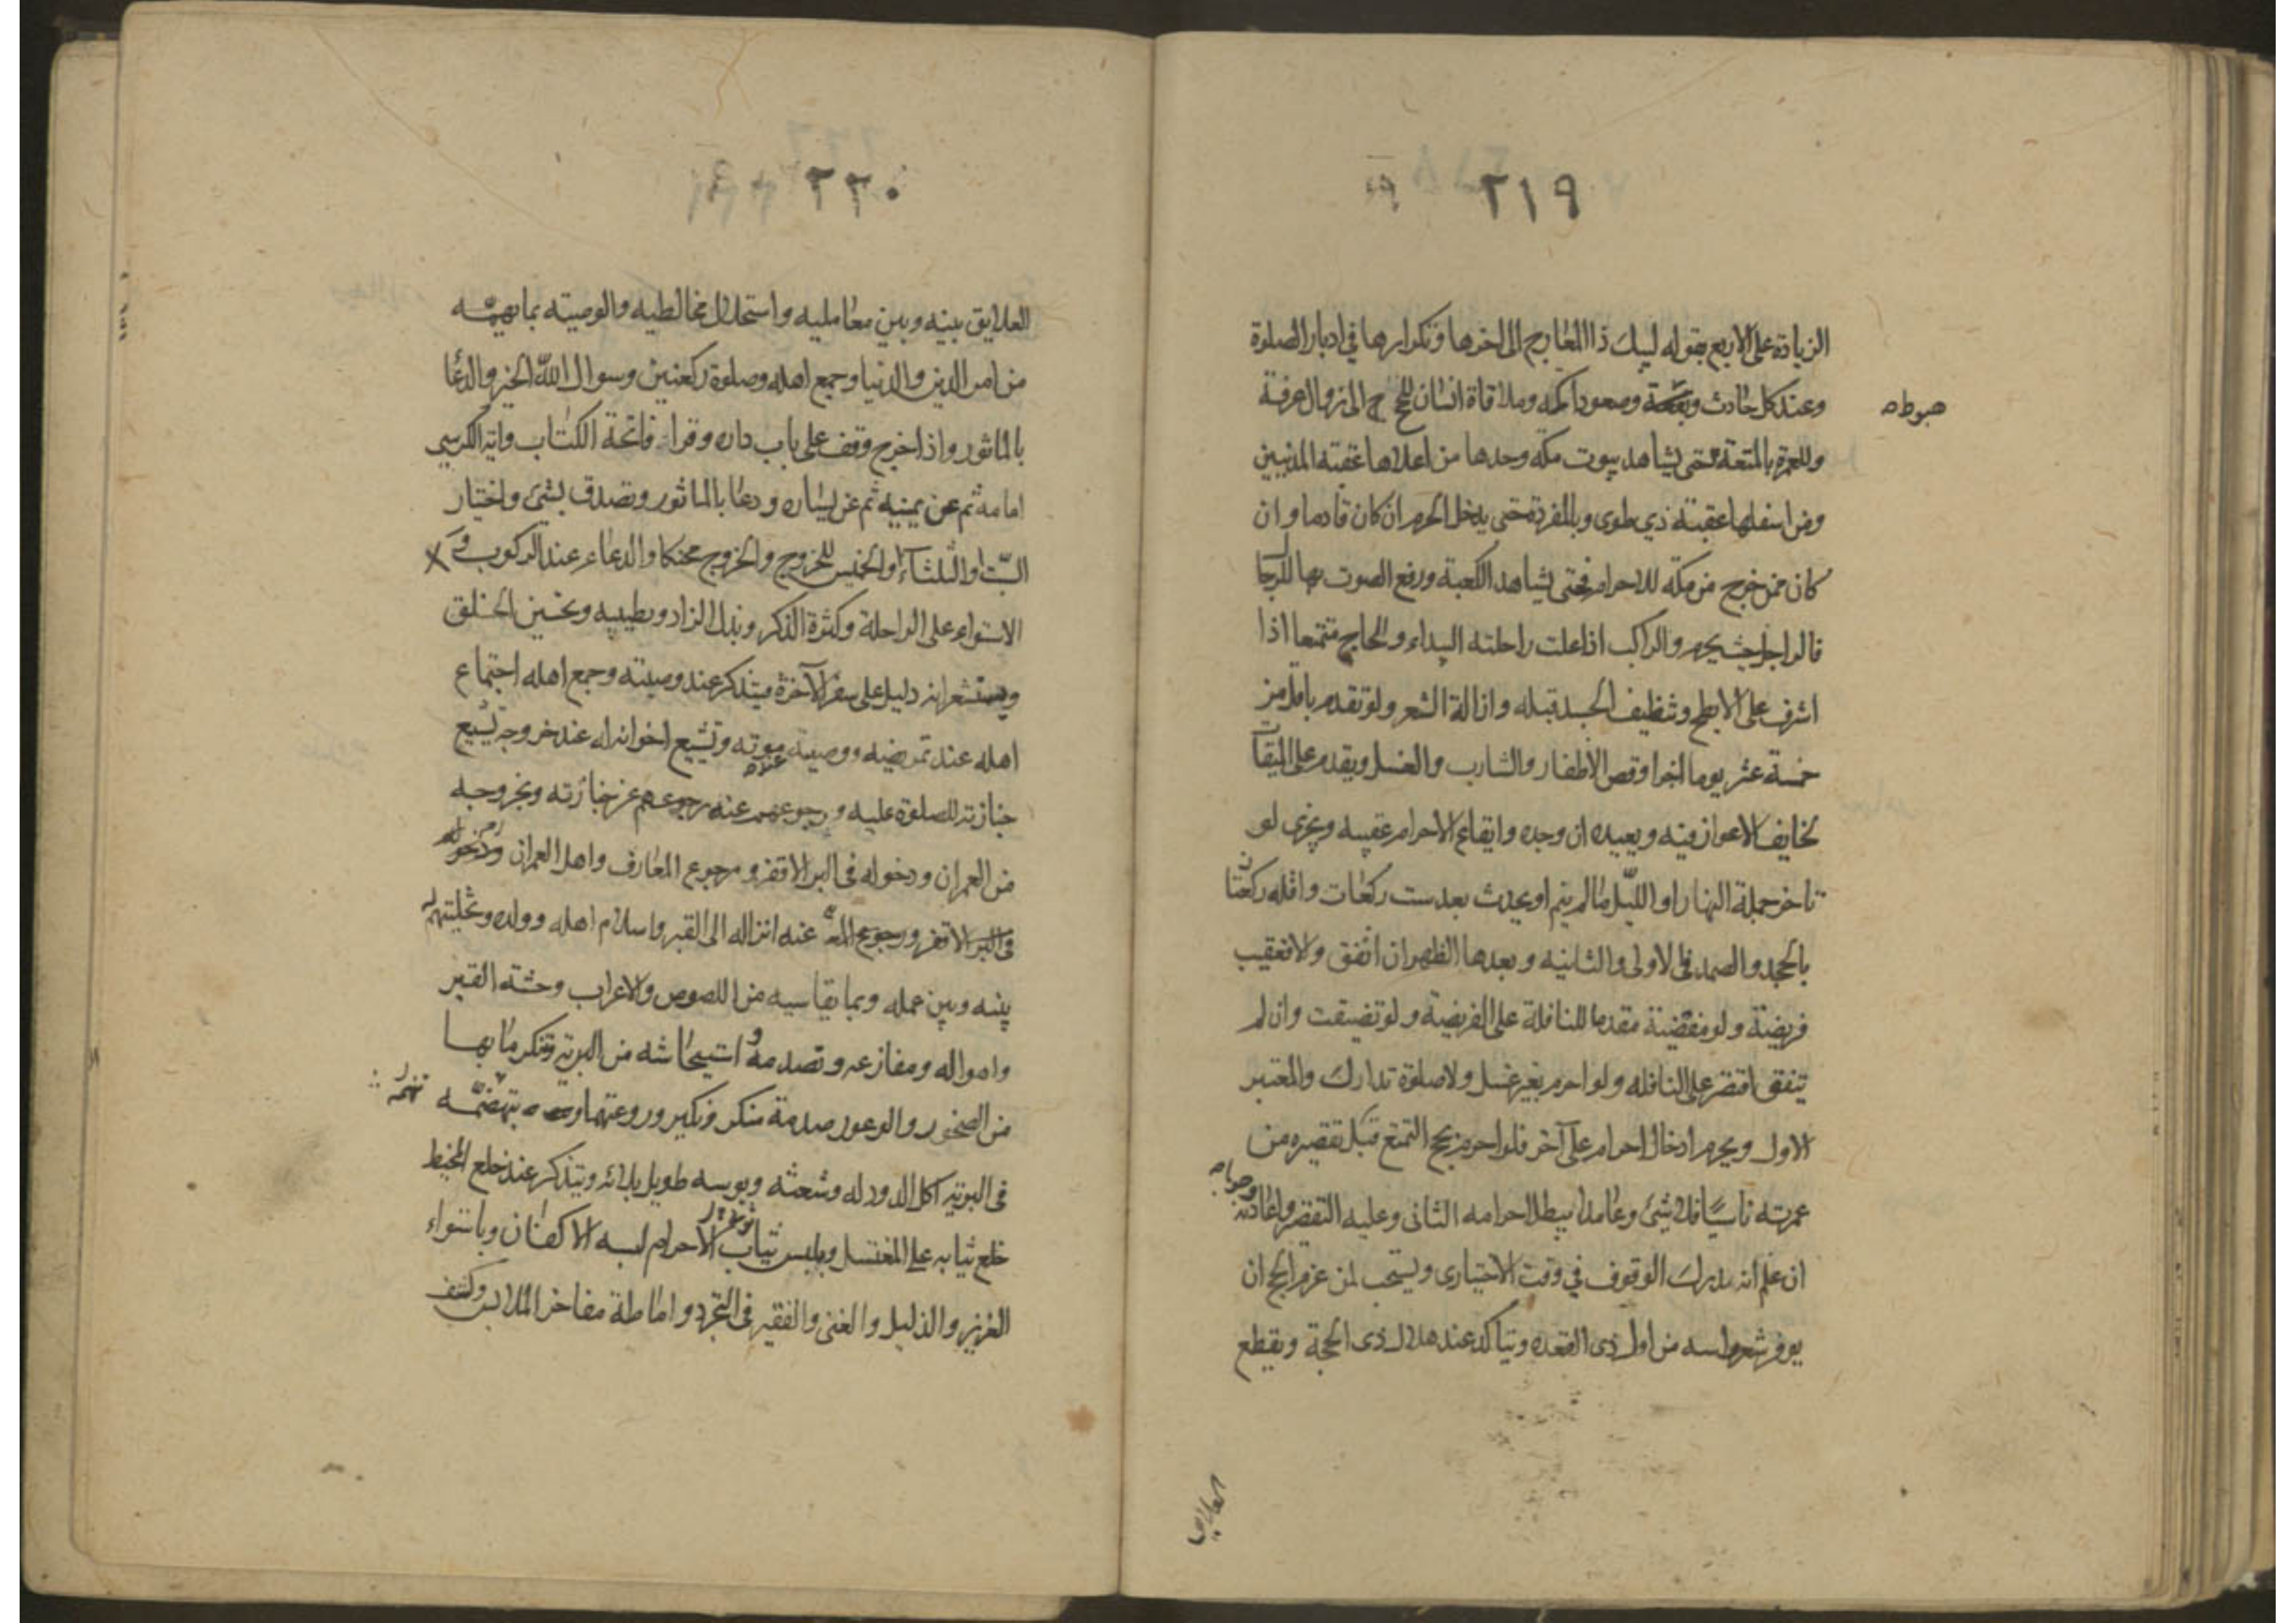 ٢١٩
الزيادة على الاربع بقوله لبيك ذا المعارج الى اخرها وتكرارها في ادبار الصلوة
وعند كل حادث ويقظة وصعود اكمه وملاقاة انسان للحج الى زوال عرفة
هبوطاه
وللعمرة بالمتعة حتى يشاهد بيوت مكة وحدها من اعلاها عقبة المدنيين
ومن اسفلها عقبة ذي طوى وبالمفردة حتى يدخل الحرم ان كان قادما وان
كان ممن خرج من مكة للاحرام فحتى يشاهد الكعبة ورفع الصوت بها للرجا
فالراجل حيث يحرم والراكب اذا علت راحلته البيداء والحاج متمتعا اذا
اشرف على الابطح وتنظيف الجسد قبله وازالة الشعر ولو تقدم باقل من
خمسة عشر يوما اجزا وقص الأظفار والشارب والغسل ويقدم على الميقات
لخايف الاعواز فيه ويعيده ان وجده وايقاع الاحرام عقيبه ويجزى لو
تاخر جملة النهار او الليل ما لم ينم او يحدث بعد ست ركعات واقله ركعتان
بالجحد والصمد في الاولى والثانيه وبعدها الظهر ان اتفق والا فعقيب
فريضة ولو مقضية مقدما للنافلة على الفريضة ولو تضيقت وان لم
يتفق اقتصر على النافله ولو احرم بغير غسل ولا صلوة تدارك والمعتبر
الاول ويحرم ادخال احرام على آخر فلو احرم بحج التمتع قبل تقصيره من
عمرته ناسيا فلا شئ وعامدا يبطل احرامه الثانى وعليه التقصير واعادته
وجوباه
ان علم انه يدرك الوقوف في وقت الاختيارى ويستحب لمن عزم الحج ان
يوفر شعر راسه من اول ذى القعده ويتاكد عند هلال ذى الحجة ويقطع
العلايق
٢٢٠
العلايق بينه وبين معامليه واستحلال مخالطيه والوصيته بما يهمه
من امر الدين والدنيا وجمع اهله وصلوة ركعتين وسوال الله الخير والدعا
بالماثور واذا خرج وقف على باب داره وقرا فاتحة الكتاب واية الكرسي
امامه ثم عن يمينه ثم عن يساره ودعا بالماثور وتصدق بشئ واختيار
السبت او الثلثاء او الخميس للخروج والخروج محنكا والدعاء عند الركوب و
الاستواء على الراحلة وكثرة الذكر وبذل الزاد وتطييبه وتحسين الخلق
ويستشعر انه دليل على سفر الآخرة فيتذكر عند وصيته وجمع اهله اجتماع
اهله عند تمريضه ووصية موته وتشييع اخوانه له عند خروجه تشييع
جنازته للصلوة عليه ورجوعهم عنه رجوعهم عن جنازته وبخروجه
من العمران ودخوله في البر الاقفر ورجوع المعارف واهل العمران ودخوله
في البر الاقفر ورجوع عنه انزاله الى القبر واسلام اهله وولده وتخليتهم له
بينه وبين عمله وبما يقاسيه من اللصوص والاعراب وحشة القبر
واهواله ومفازعه وتصدمه واستيحاشه من البرية وتذكر ما بها
من الصخور والوعور صدمة منكر ونكير وروعتهما
في البرية اكل الدود له وشعثه وبوسه طويل بلائه ويتذكر عند خلع المخيط
خلع ثيابه على المغتسل ويلبس ثياب الاحرام لبسه الاكفان وباستواء
العزيز والذليل والغنى والفقير فى التجرد واماطة مفاخر الملابس وكشف